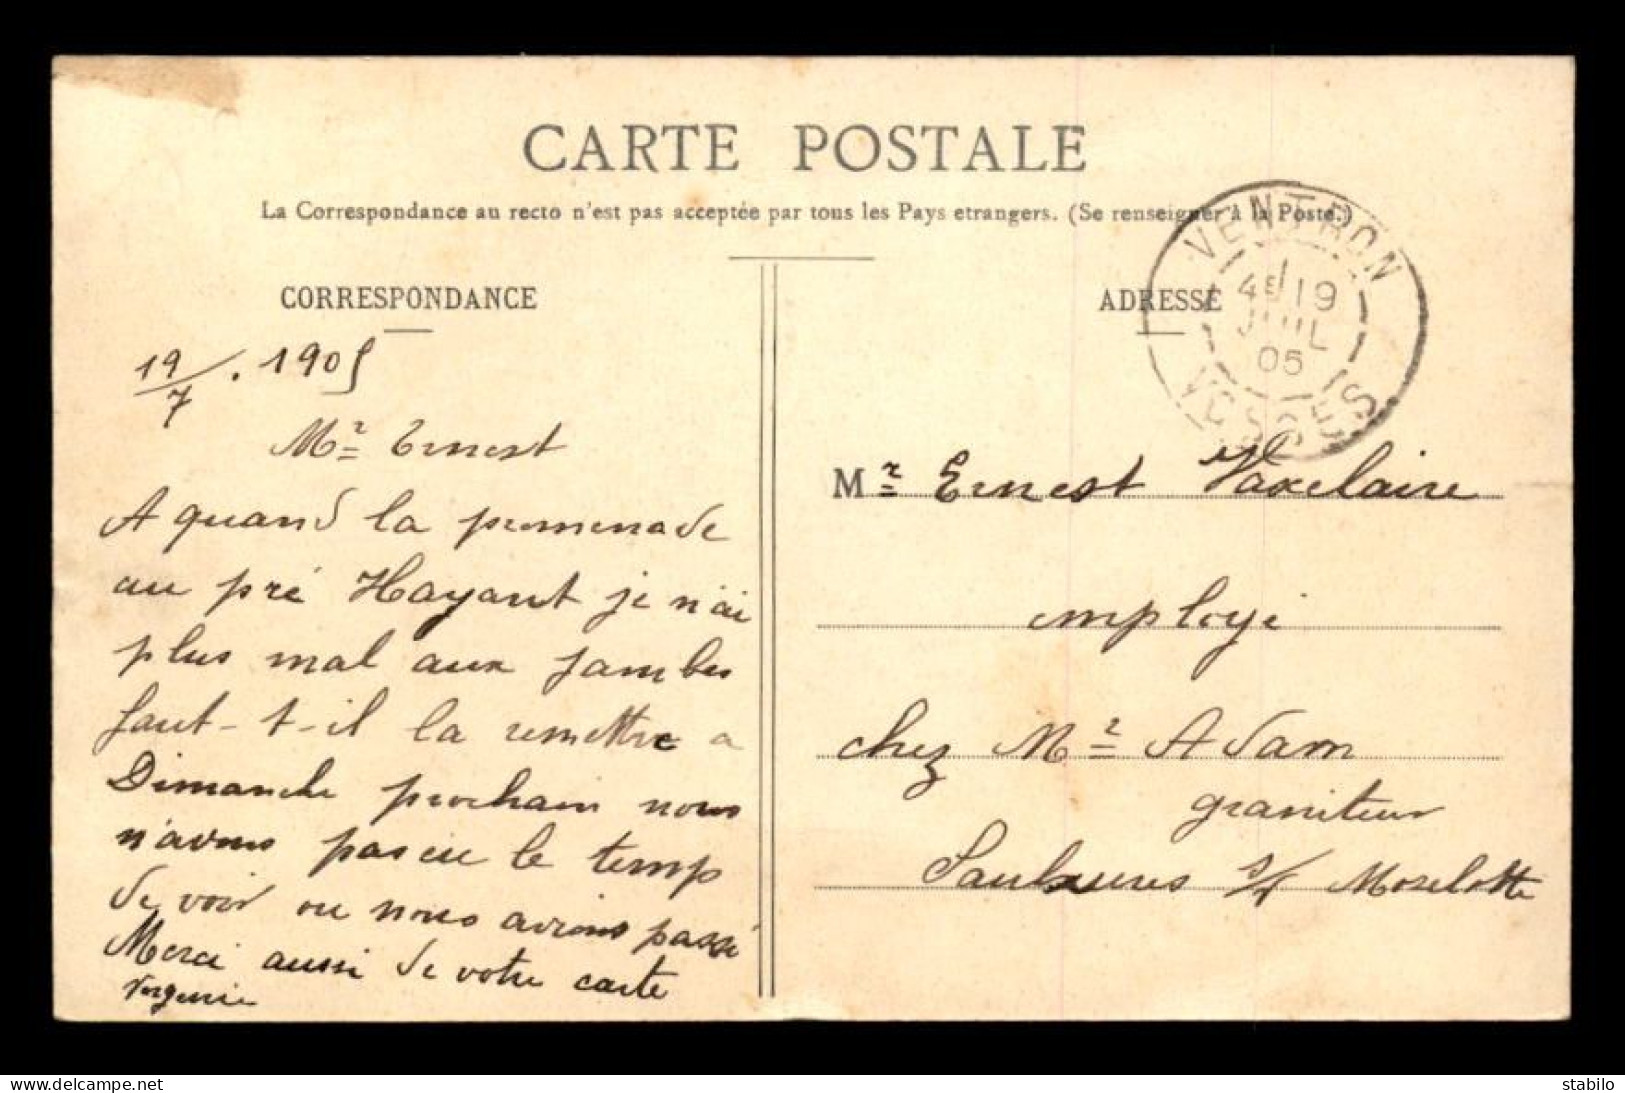 CARTE POSTALE
La Correspondance au recto n'est pas acceptée par tous les Pays etrangers. (Se renseigner à la Poste.)
CORRESPONDANCE
19/7. 1905
Mr Ernest
A quand la promenade
au pré Hayant je n'ai
plus mal aux jambes
faut-t-il la remettre a
Dimanche prochain nous
n'avons pas eu le temp
de voir ou nous avions passé
Merci aussi de votre carte
ADRESSE
VENTRON
4E 19
JUIL
05
VOSGES
Mr Ernest Vaxelaire
employé
chez Mr Adam
graniteur
Saulxures s/ Moselotte
delcampe.net
stabilo